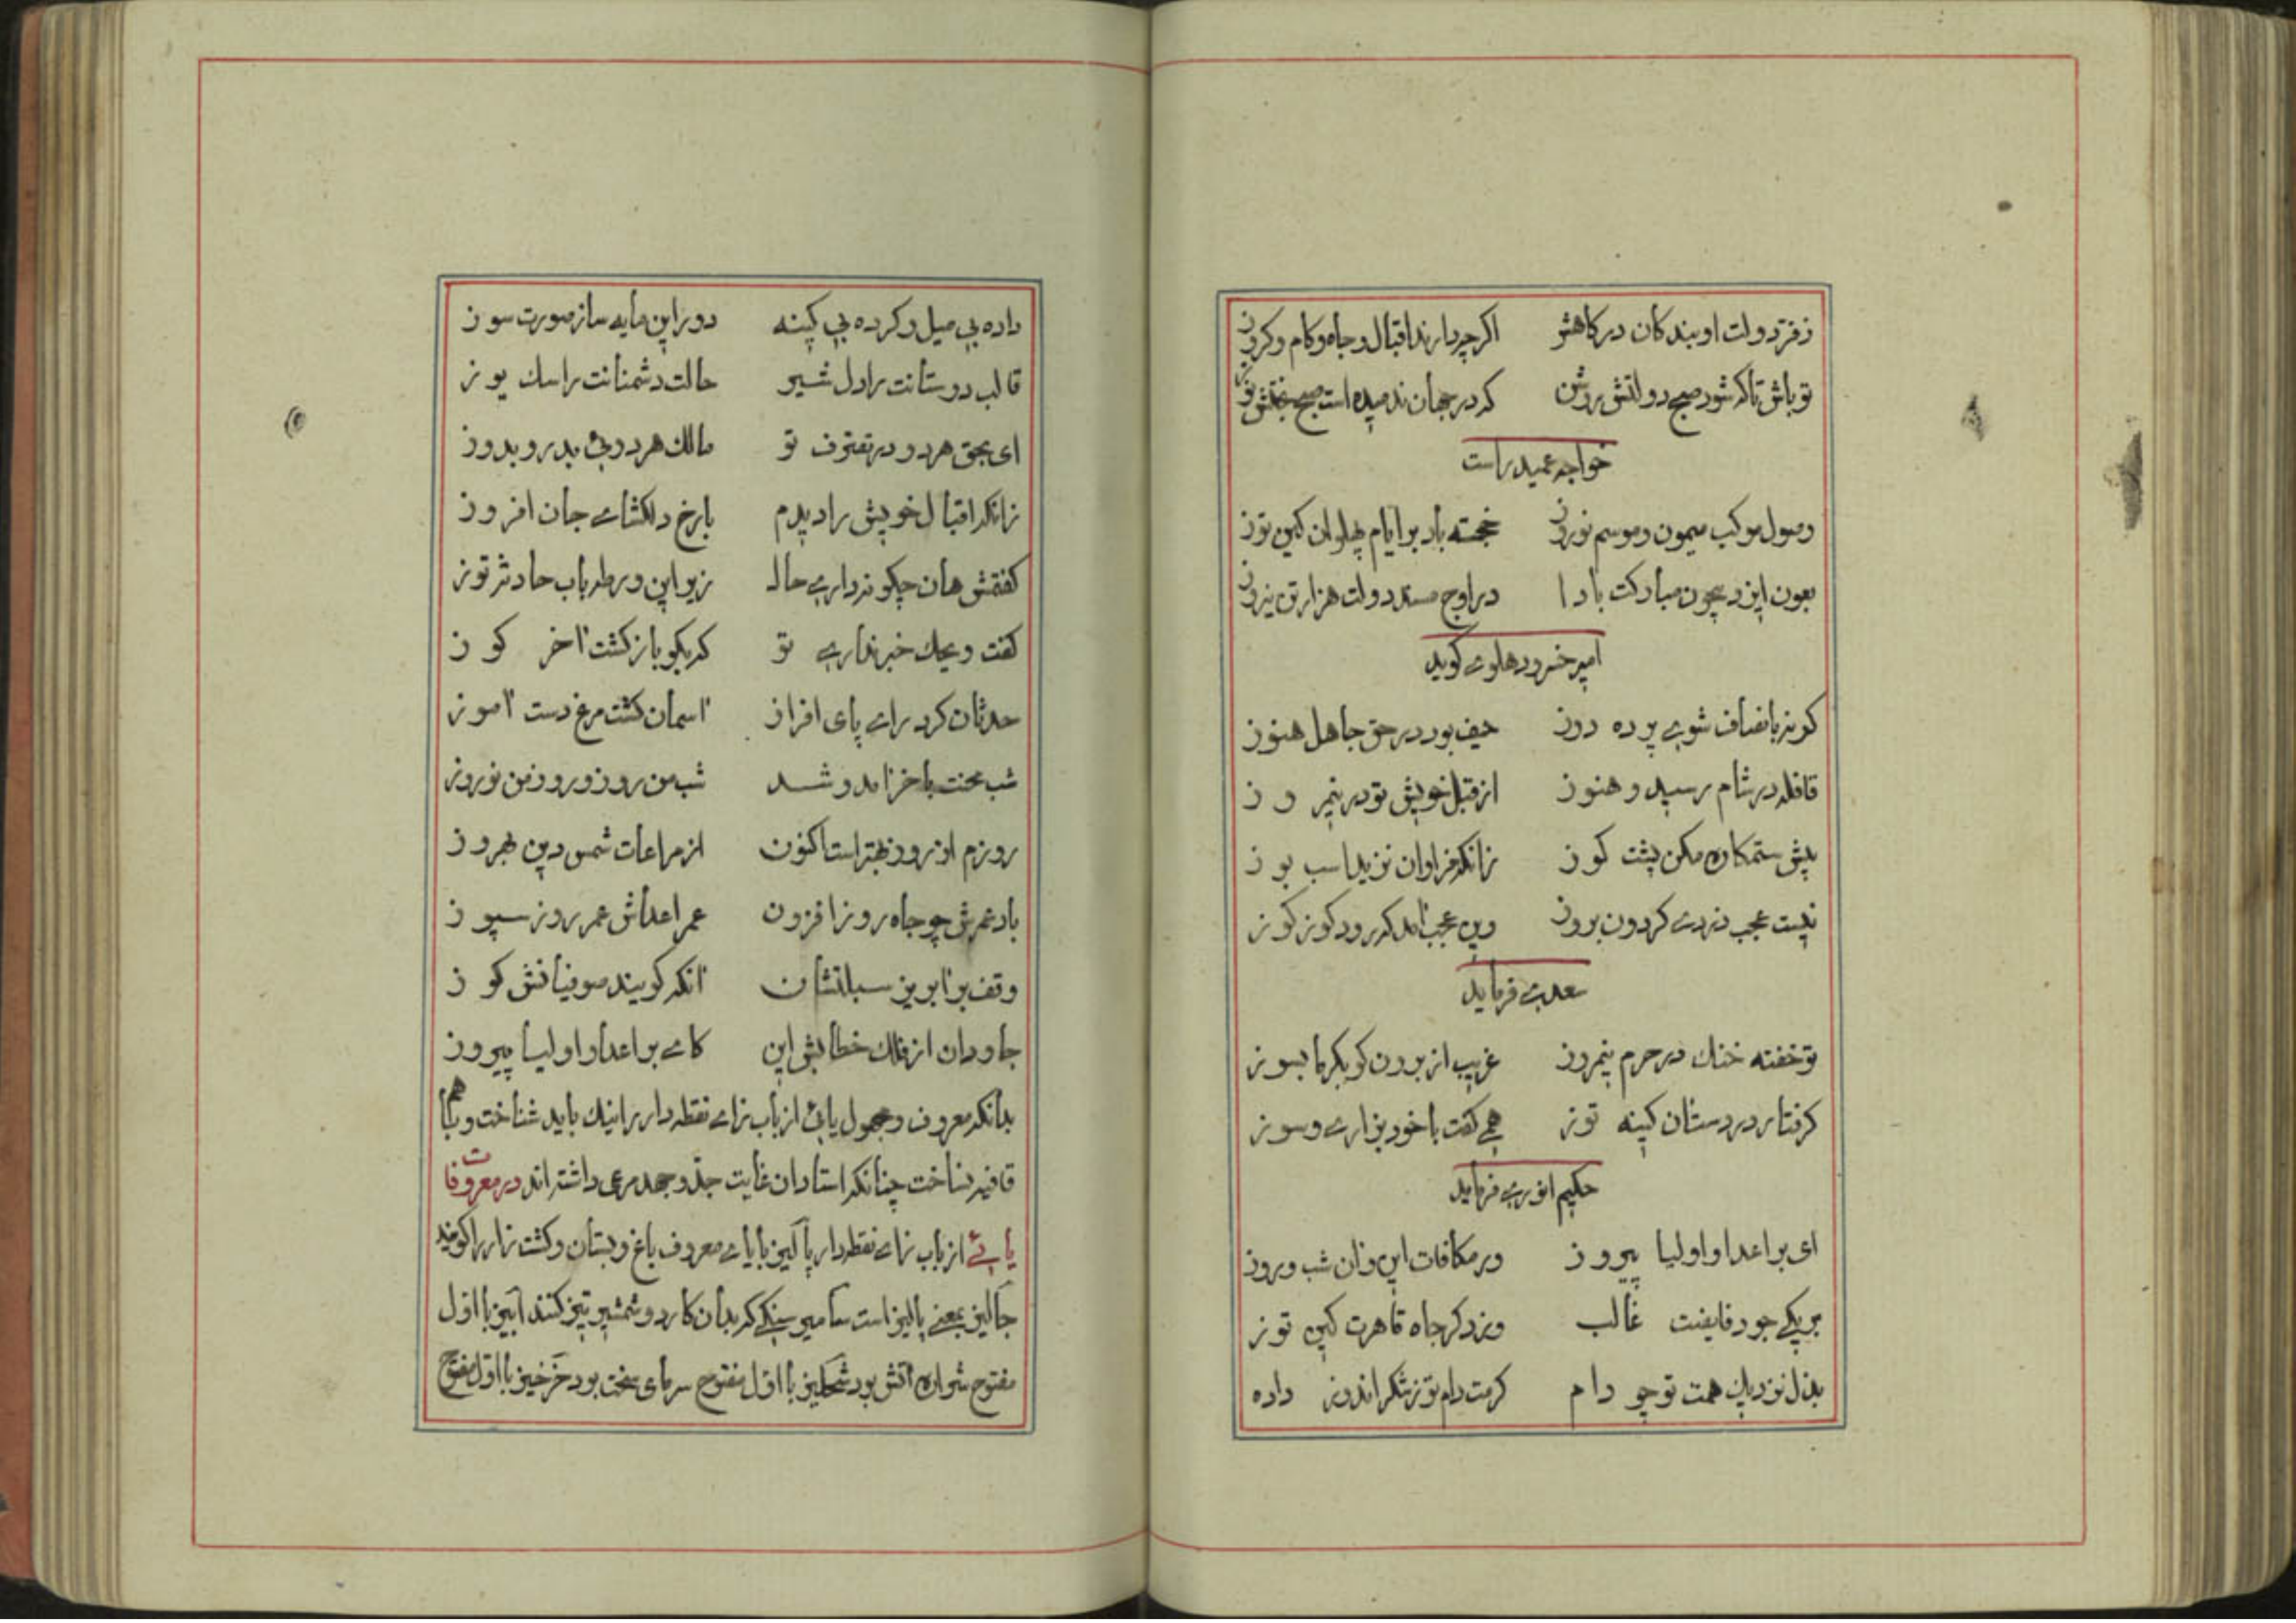 ز فر دولت او بندکان درکاهش اکرچه دارند اقبال و جاه و کام و کروز
تو باش تا که شود صبح دولتش روشن که در جهان ندمیده است صبح بختش نوز
خواجه عمید راست
وصول موکب میمون و موسم نوروز خجسته باد بر ایام پهلوان کین توز
بعون ایزد بیچون مبارکت بادا در اوج مسند دولت هزار نوروز
امیر خسرو دهلوی کوید
کونه بانصاف شوی پرده دوز حیف بود در حق جاهل هنوز
قافله در شام رسید و هنوز از قبل خویش تو در نیمروز
پیش ستمکاره مکن پشت کوز زانکه فراوان نزید اسب بوز
نیست عجب دزدی کردون بروز وین عجب آمد که رود کوز کوز
سعدی فرماید
تو خفته خنک در حرم نیمروز غریب از برون کو بکرما بسوز
کرفتار در دستان کینه توز همی کفت با خود بزاری و سوز
حکیم انوری فرماید
ای بر اعدا و اولیا پیروز در مکافات این و آن شب و روز
بر یکی جود فایضت غالب وز دکر جاه قاهرت کین توز
بذل نزدیک همت تو چو دام کرمت دام توز شکر اندوز داده
داده بی میل و کرده بی کینه دور این مایه ساز صورت سوز
قالب دوستانت را دل شیر حالت دشمنانت را سک یوز
ای بحق هر دو در تصرف تو مالک هر دویی بدر و بدوز
زانکه اقبال خویش را دیدم با رخ دلکشای جان افروز
کفتمش هان چکونه داری حال زیر این ورطه باب حادثه توز
کفت ویحک خبر نداری تو که بکو باز کشت آخر کوز
حدثان کرد رای پای افراز آسمان کشت مرغ دست آموز
شب محنت باخر آمد و شد شب من روز و روز من نوروز
روزم از روز بهتر است اکنون از مراعات شمس دین بهروز
باد عمرش چو جاه روز افزون عمر اعداش عمر روز سپوز
وقف بر آبریز سبلتشان آنکه کویند صوفیانش کوز
جاودان از فلک خطابش این کای بر اعدا و اولیا پیروز
بدانکه معروف و مجهول یایی از باب زای نقطه دار را نیک باید شناخت و با هم
قافیه نساخت چنانکه استادان غایت جد و جهد مرعی داشته اند در معروفات
یائی از باب زای نقطه دار پالیز با یای معروف باغ و بستان و کشت زار را کویند
جالیز بمعنی پالیز است سامیز سنکی که بدان کارد و شمشیر تیز کنند آییز با اول
مفتوح شراره آتش بود شجلیز با اول مفتوح سرمای سخت بود خرخیز با اول مفتوح